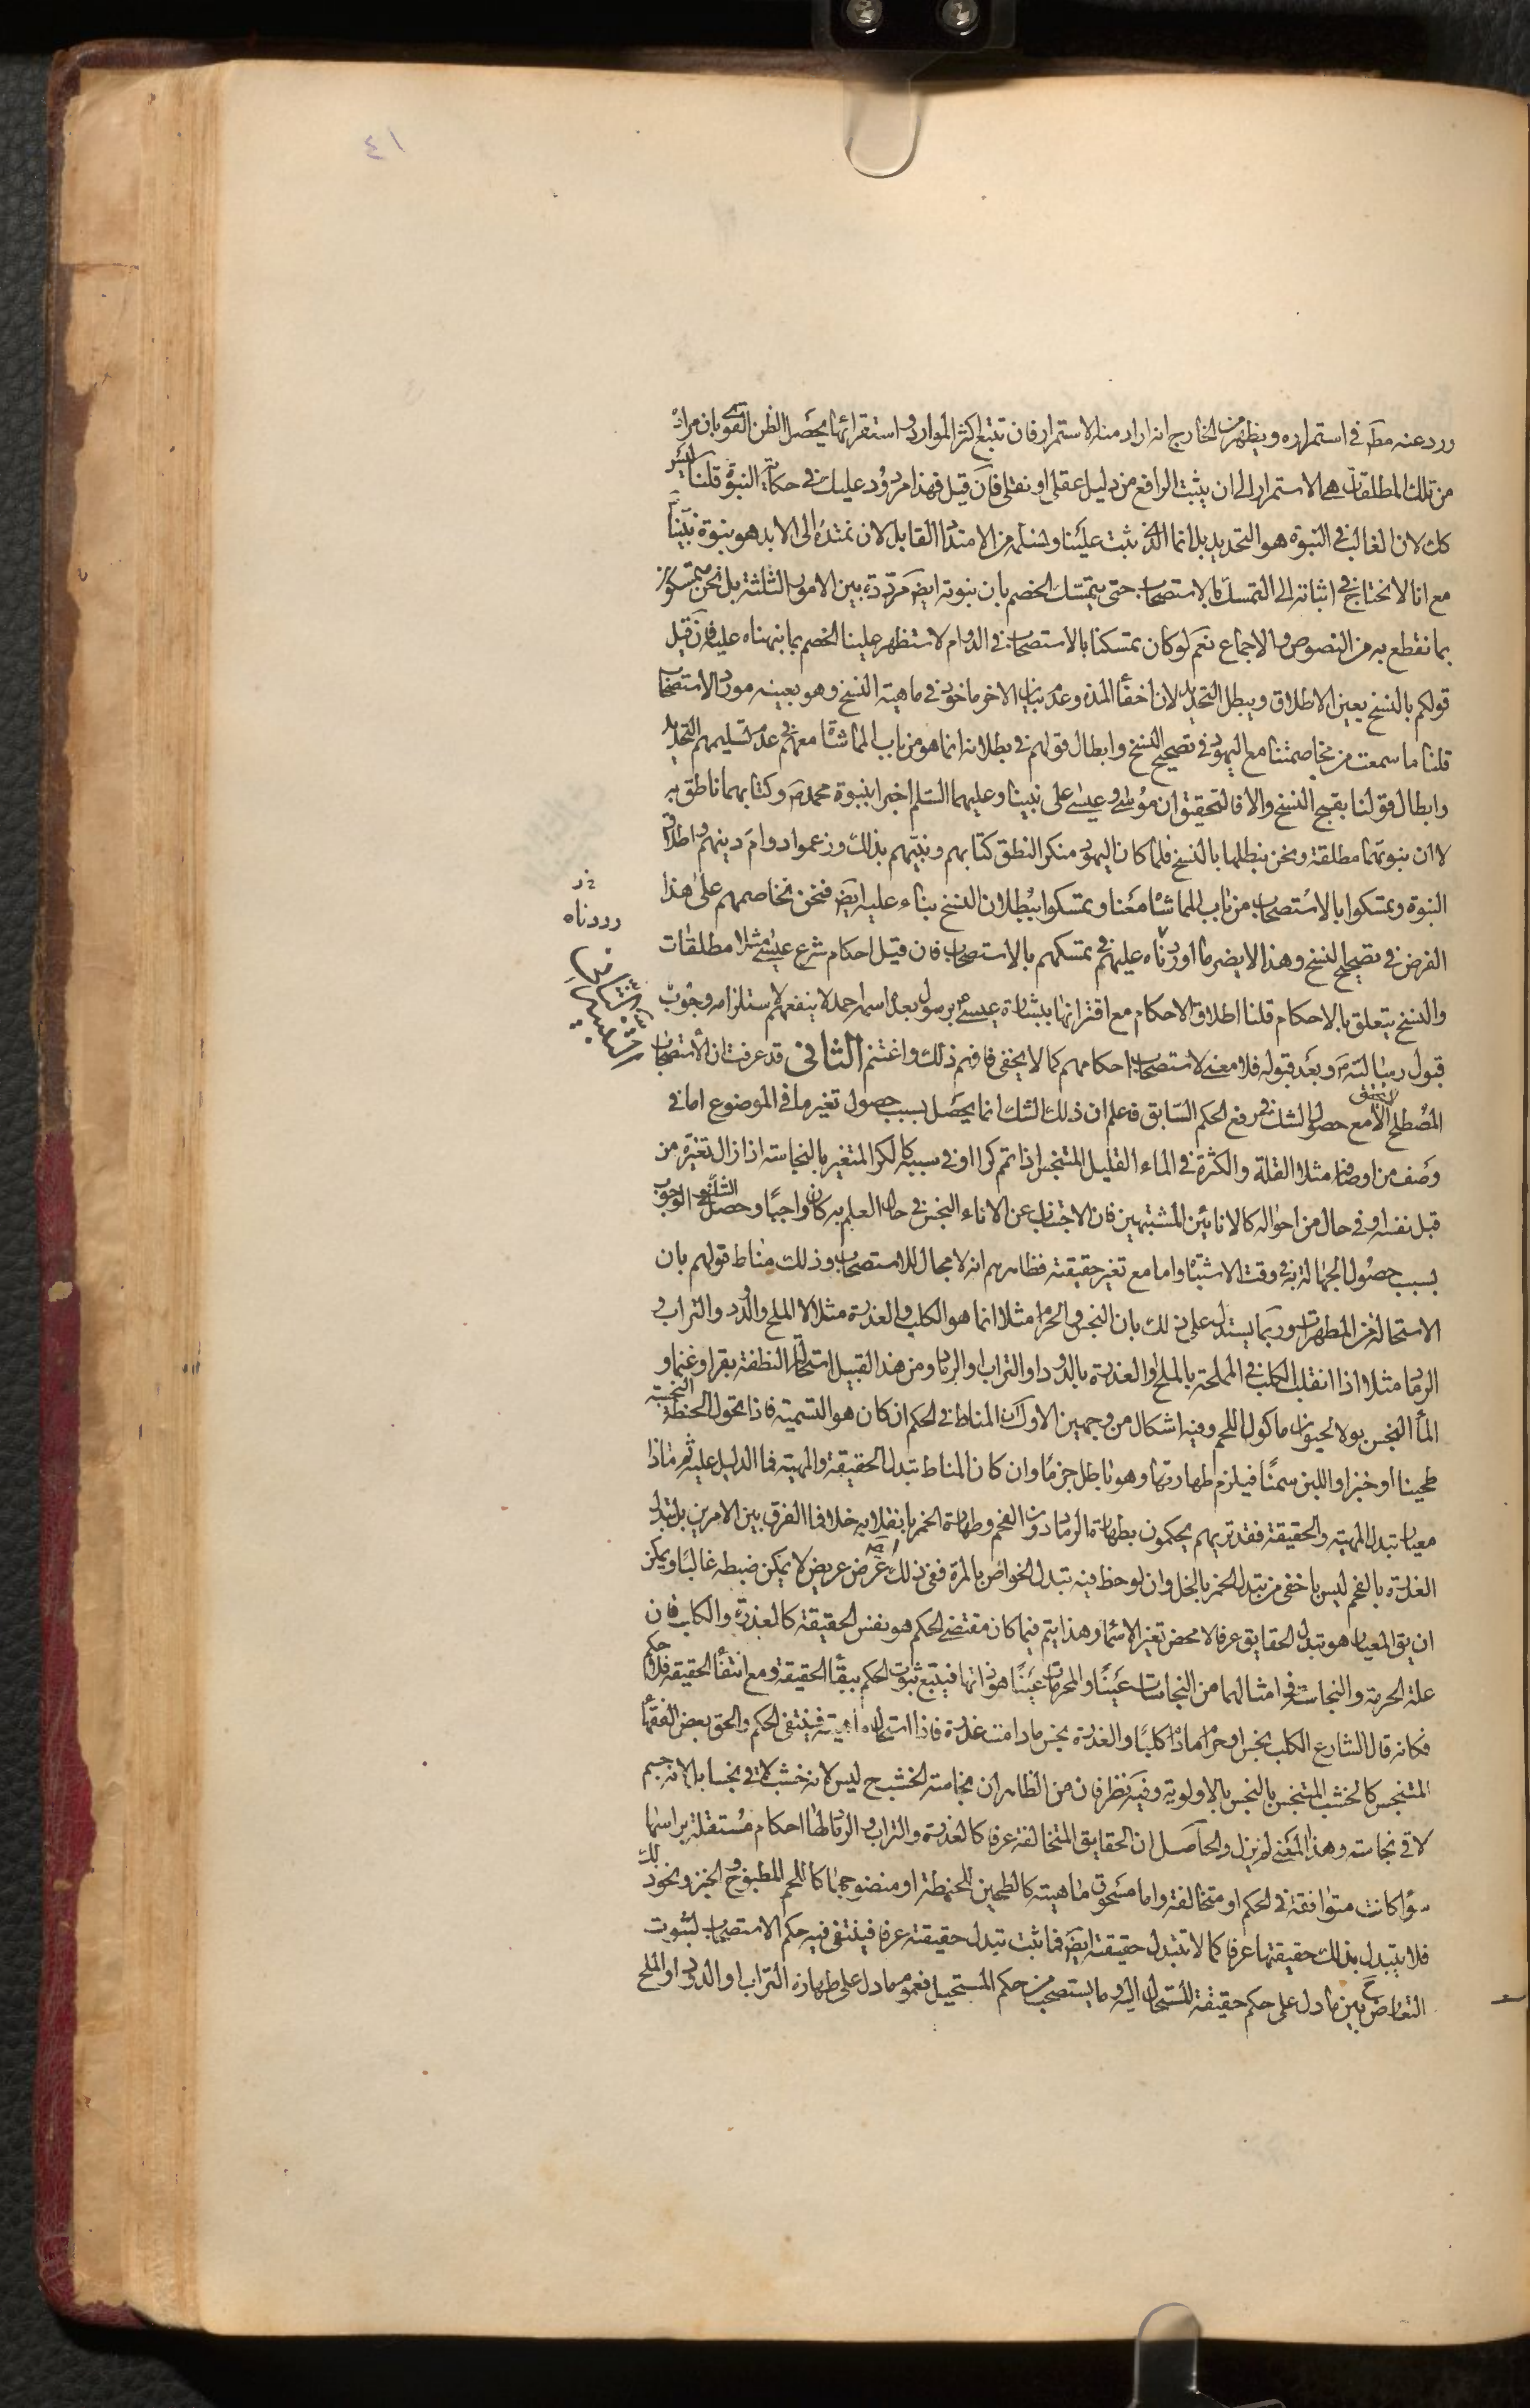 ٤١
ورد عنه مطَ في استمراره ويظهر من الخارج انه اراد منه الاستمرار فان تتبع اكثر الموارد واستقرائها يحصّل الظن القوي بان مراده
من تلك المطلقات هي الاستمرار الى ان يثبت الرافع من دليل عقلي او نقلي فان قيل فهذا مردود عليك في حكاية النبوة قلنا ليس
كك لان الغالب في النبوة هو التحديد بل انما الذي ثبت علينا ونسلمه من الامتداد القابل لان نمتده الى الابد هو نبوة نبينا
مع انا لا نحتاج في اثباته الى التمسك بالاستصحاب حتى يتمسك الخصم بان نبوته ايضَ مرددة بين الامور الثلثة بل نحن متمسكون
بما نقطع به من النصوص والاجماع نعم لو كان تمسكنا بالاستصحاب في الدوام لاستظهر علينا الخصم بما نبهناه عليه فان قيل
قولكم بالنسخ يعين الاطلاق ويبطل التحديد لان اخفاء المدة وعدم بيان الاخر ماخوذ في ماهية النسخ وهو بعينه مورد الاستصحاب
قلنا ما سمعت من مخاصمتنا مع اليهود في تصحيح النسخ وابطال قولهم في بطلانه انما هو من باب المماشاة معهم في عدم تسليمهم التحديد
وابطال قولنا بقبح النسخ والا فالتحقيق ان موسى وعيسى على نبينا وعليهما السّلم اخبرا بنبوة محمد صَ وكتابهما ناطق به
لا ان نبوتهما مطلقة ونحن نبطلها بالنسخ فلما كان اليهود منكر النطق كتابهم ونبيّهم بذلك وزعموا دوام دينهم واطلاق
النبوة وتمسكوا بالاستصحاب من باب المماشاة معنا وتمسكوا ببطلان النسخ بناء عليه ايضَ فنحن نخاصمهم على هذا
الفرض في تصحيح النسخ وهذا لا يضر ما اوردناه عليهم في تمسكهم بالاستصحاب فان قيل احكام شرع عيسى مثلا مطلقات
والنسخ يتعلق بالاحكام قلنا اطلاق الاحكام مع اقترانها ببشارة عيسى برسول بعده اسمه احمد لا ينفعهم لاستلزامه وجوب
قبول رسالته صَ وبعد قبوله فلا معنى لاستصحاب احكامهم كما لا يخفى فافهم ذلك واغتنم الثاني قد عرفت ان الاستصحاب
المصطلح لا يتحقق الا مع حصول الشك في رفع الحكم السّابق فاعلم ان ذلك الشك انما يحصّل بسبب حصول تغير ما في الموضوع اما في
وصف من اوصافه مثلا القلة والكثرة في الماء القليل المتنجس اذا تمم كرا او في سببه كالكر المتغير بالنجاسة اذا زال تغيّره من
قبل نفسه او في حال من احواله كالانائين المشتبهين فان الاجتناب عن الاناء النجس في حال العلم به كان واجبًا وحصل الشك في الوجوب
بسبب حصول الجهالة به في وقت الاشتباه واما مع تغير حقيقته فظاهرهم انه لا مجال للاستصحاب وذلك مناط قولهم بان
الاستحالة من المطهرات وربما يستدل على ذلك بان النجس والحرام مثلا انما هو الكلب والعذرة مثلا لا الملح والدود والتراب و
الرماد مثلا اذا انقلب الكلب في المملحة بالملح او العذرة بالدود او التراب او الرماد ومن هذا القبيل استحالة النطفة بقرا وغنما و
الماء النجس بولا لحيوان ماكول اللحم وفيه اشكال من وجهين الاول ان المناط في الحكم ان كان هو التسمية فاذا تحول الحنطة النجسة
طحينا او خبزا واللبن سمنًا فيلزم طهارتها وهو باطل جزمًا وان كان المناط تبدل الحقيقة والمهية فما الدليل عليه ثم ماذا
معيار تبدل المهية والحقيقة فقد تريهم يحكمون بطهارة الرماد دون الفحم وطهارة الخمر بانقلابه خلا فما الفرق بين الامرين بل تبدل
العذرة بالفحم ليس باخفى من تبدل الخمر بالخل وان لوحظ فيه تبدل الخواص بالمرة ففي ذلك ايضَ عرض عريض لا يمكن ضبطه غالبًا ويمكن
ان يق المعيار هو تبدل الحقايق عرفا لا محض تغير الاسماء وهذا يتم فيما كان مقتضى الحكم هو نفس الحقيقة كالعذرة والكلب فان
علة الحرمة والنجاسة في امثالهما من النجاسات عينًا والمحرمات عينًا هو ذاتها فيتبع ثبوت الحكم ببقاء الحقيقة ومع انتفاء الحقيقة فلا حكم
فكانه قال الشارع الكلب نجس او حرام ما دام كلبًا والعذرة نجس ما دامت عذرة فاذا استحال ماهيته فينتفي الحكم والحق بعض الفقهاء
المتنجس كالخشب المتنجس بالنجس بالاولوية وفيه نظر فان من الظاهر ان نجاسة الخشب ح ليس لانه خشب لاقى نجسا بل لانه جسم
لاقى نجاسة وهذا المعنى لم يزل والحاصل ان الحقايق المتخالفة عرفا كالعذرة والتراب والرماد لها احكام مستقلة براسها
سواء كانت متوافقة في الحكم او متخالفة واما مسحوق ماهيته كالطحين للحنطة او منضوجها كاللحم المطبوخ والخبز ونحو ذلك
فلا يتبدل بذلك حقيقتها عرفا كما لا تتبدل حقيقة ايضَ فما ثبت تبدل حقيقته عرفا فينتفي فيه حكم الاستصحاب لثبوت
التعارض ح بين ما دل على حكم حقيقة المستحال اليه وما يستصحب من حكم المستحيل فعموم ما دل على طهارة التراب او الدود او الملح
رددناه